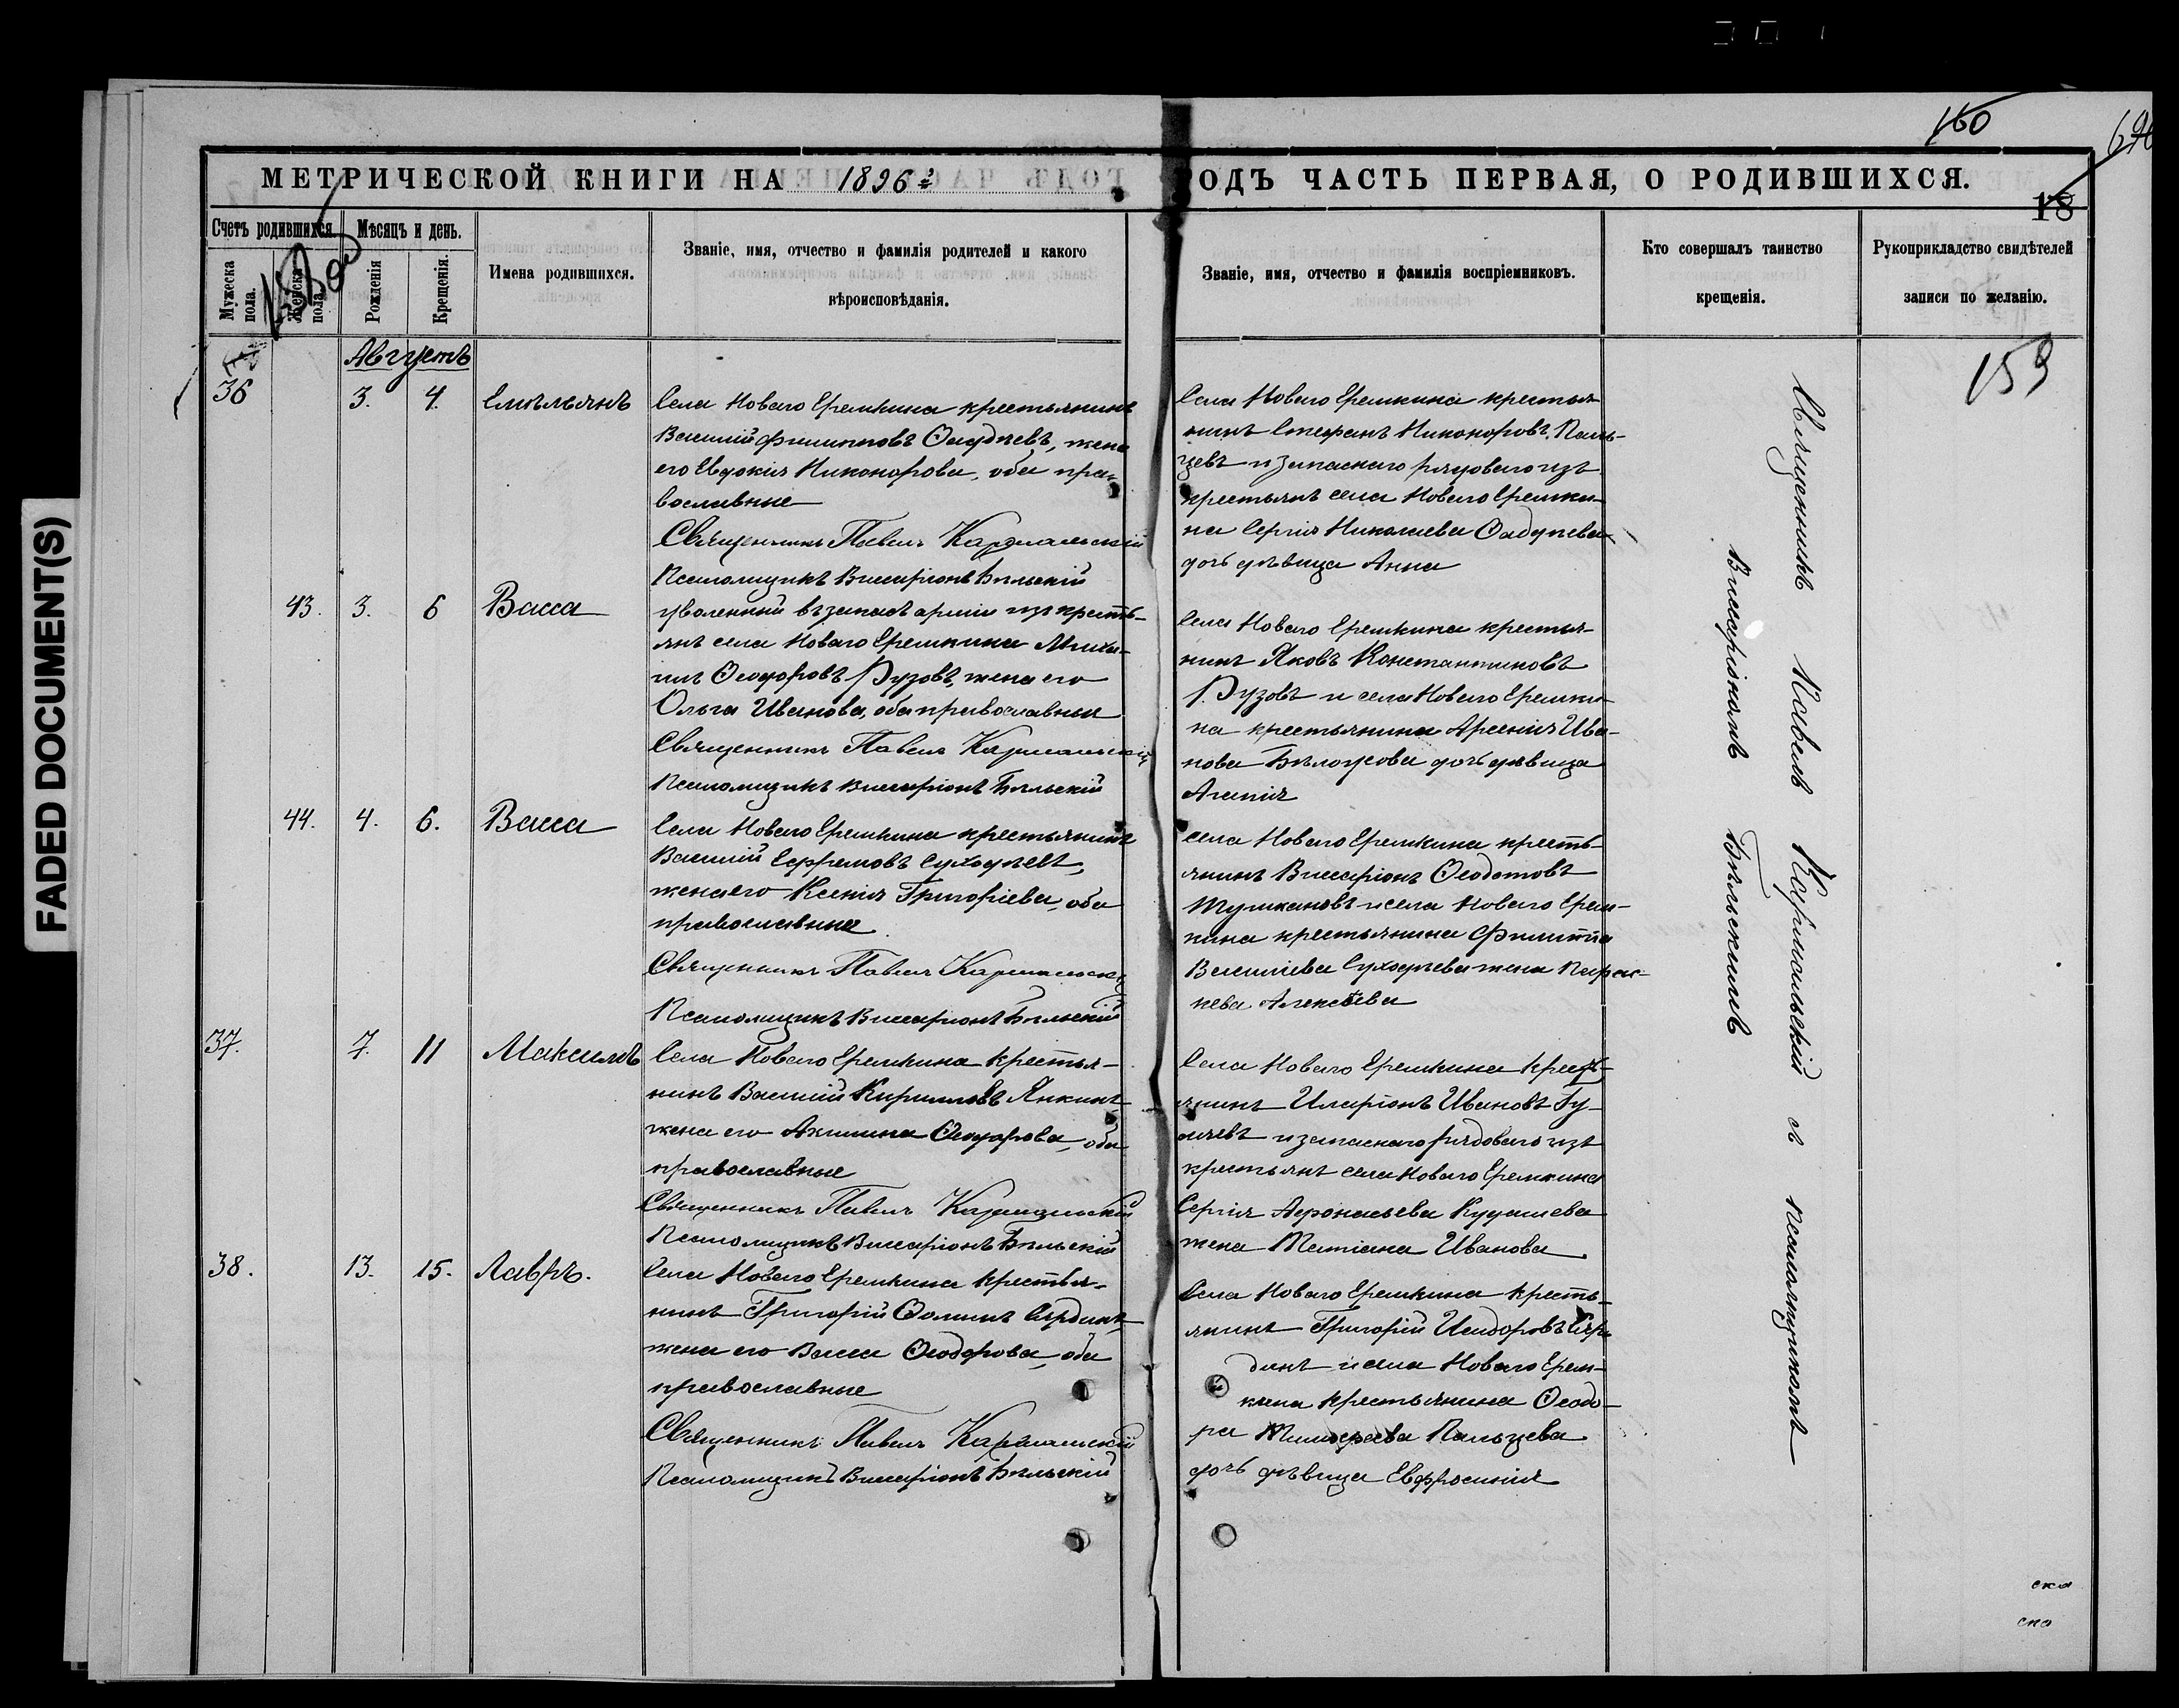 160
696
МЕТРИЧЕСКОЙ КНИГИ НА 1896 ГОДЪ ЧАСТЬ ПЕРВАЯ, О РОДИВШИХСЯ.
18
Счетъ родившихся.
Мѣсяцъ и день.
Мужеска пола.
Женска пола.
Рожденія
Крещенія.
Имена родившихся.
Званіе, имя, отчество и фамилія родителей и какого
вѣроисповѣданія.
Званіе, имя, отчество и фамилія воспріемниковъ.
Кто совершалъ таинство
крещенія.
Рукоприкладство свидѣтелей
записи по желанію.
159
Августъ
36 3. 4. Емельянъ
Села Новаго Еремкина крестьянинъ
Василій Филипповъ, жена
его Евдокія Никонорова, оба пра-
вославные
Священникъ Павелъ Кармальскій
Псаломщикъ Виссаріонъ Бѣльскій
Села Новаго Еремкина крестья-
нинъ Стефанъ Никоноровъ Паль-
цевъ и запаснаго рядоваго изъ
крестьянъ села Новаго Еремки-
на Сергія Николаева
дочь дѣвица Анна
43. 3. 6 Васса
Уволенный въ запасъ арміи изъ кресть-
янъ села Новаго Еремкина Миха-
илъ Ѳеодоровъ Рузовъ, жена его
Ольга Иванова, оба православные
Священникъ Павелъ Кармальскій
Псаломщикъ Виссаріонъ Бѣльскій
Села Новаго Еремкина крестья-
нинъ Яковъ Константиновъ
Рузовъ и села Новаго Еремки-
на крестьянина Арсенія Ива-
нова Бѣлоусова дочь дѣвица
Агапія
44. 4. 6. Васса
Села Новаго Еремкина крестьянинъ
Василій Ефремовъ Суходѣевъ,
жена его Ксенія Григоріева, оба
православные
Священникъ Павелъ Кармальскій
Псаломщикъ Виссаріонъ Бѣльскій
Села Новаго Еремкина кресть-
янинъ Виссаріонъ Ѳеодотовъ
Тушкановъ и села Новаго Ерем-
кина крестьянина Филиппа
Василіева Суходѣева жена Параске-
нева Алексѣева
37. 7. 11 Максимъ
Села Новаго Еремкина крестья-
нинъ Василій Кирилловъ Янкинъ
жена его Акилина Ѳеодорова, оба
православные
Священникъ Павелъ Кармальскій
Псаломщикъ Виссаріонъ Бѣльскій
Села Новаго Еремкина кресть-
янинъ Иларіонъ Ивановъ Гу-
и запаснаго рядоваго изъ
крестьянъ села Новаго Еремкина
Сергія Аѳонасьева Кудашева
жена Татіана Иванова
38. 13. 15. Лавръ.
Села Новаго Еремкина крестья-
нинъ Григорій Ѳоминъ Сярдинъ
жена его Васса Ѳеодорова, оба
православные
Священникъ Павелъ Кармальскій
Псаломщикъ Виссаріонъ Бѣльскій
Села Новаго Еремкина кресть-
янинъ Григорій Исидоровъ Сяр-
динъ и села Новаго Ерем-
кина крестьянина Ѳеодо-
ра Тимоѳеева Пальцева
дочь дѣвица Евфросинія
Священникъ Павелъ Кармальскій съ псаломщикомъ
Виссаріономъ Бѣльскимъ
FADED DOCUMENT(S)